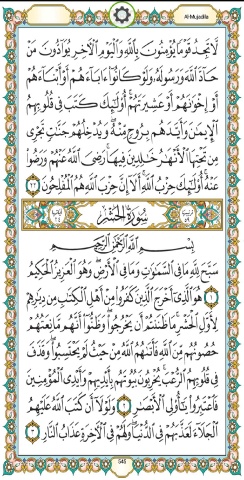 Al-Mujadila
لَّا تَجِدُ قَوْمًا يُؤْمِنُونَ بِاللَّهِ وَالْيَوْمِ الْآخِرِ يُوَادُّونَ مَنْ
حَادَّ اللَّهَ وَرَسُولَهُ وَلَوْ كَانُوا آبَاءَهُمْ أَوْ أَبْنَاءَهُمْ
أَوْ إِخْوَانَهُمْ أَوْ عَشِيرَتَهُمْ أُولَٰئِكَ كَتَبَ فِي قُلُوبِهِمُ
الْإِيمَانَ وَأَيَّدَهُم بِرُوحٍ مِّنْهُ وَيُدْخِلُهُمْ جَنَّاتٍ تَجْرِي
مِن تَحْتِهَا الْأَنْهَارُ خَالِدِينَ فِيهَا رَضِيَ اللَّهُ عَنْهُمْ وَرَضُوا
عَنْهُ أُولَٰئِكَ حِزْبُ اللَّهِ أَلَا إِنَّ حِزْبَ اللَّهِ هُمُ الْمُفْلِحُونَ ٢٢
سُورَةُ الْحَشْرِ
بِسْمِ اللَّهِ الرَّحْمَٰنِ الرَّحِيمِ
سَبَّحَ لِلَّهِ مَا فِي السَّمَاوَاتِ وَمَا فِي الْأَرْضِ وَهُوَ الْعَزِيزُ الْحَكِيمُ
١ هُوَ الَّذِي أَخْرَجَ الَّذِينَ كَفَرُوا مِنْ أَهْلِ الْكِتَابِ مِن دِيَارِهِمْ
لِأَوَّلِ الْحَشْرِ مَا ظَنَنتُمْ أَن يَخْرُجُوا وَظَنُّوا أَنَّهُم مَّانِعَتُهُمْ
حُصُونُهُم مِّنَ اللَّهِ فَأَتَاهُمُ اللَّهُ مِنْ حَيْثُ لَمْ يَحْتَسِبُوا وَقَذَفَ
فِي قُلُوبِهِمُ الرُّعْبَ يُخْرِبُونَ بُيُوتَهُم بِأَيْدِيهِمْ وَأَيْدِي الْمُؤْمِنِينَ
فَاعْتَبِرُوا يَا أُولِي الْأَبْصَارِ ٢ وَلَوْلَا أَن كَتَبَ اللَّهُ عَلَيْهِمُ
الْجَلَاءَ لَعَذَّبَهُمْ فِي الدُّنْيَا وَلَهُمْ فِي الْآخِرَةِ عَذَابُ النَّارِ ٣